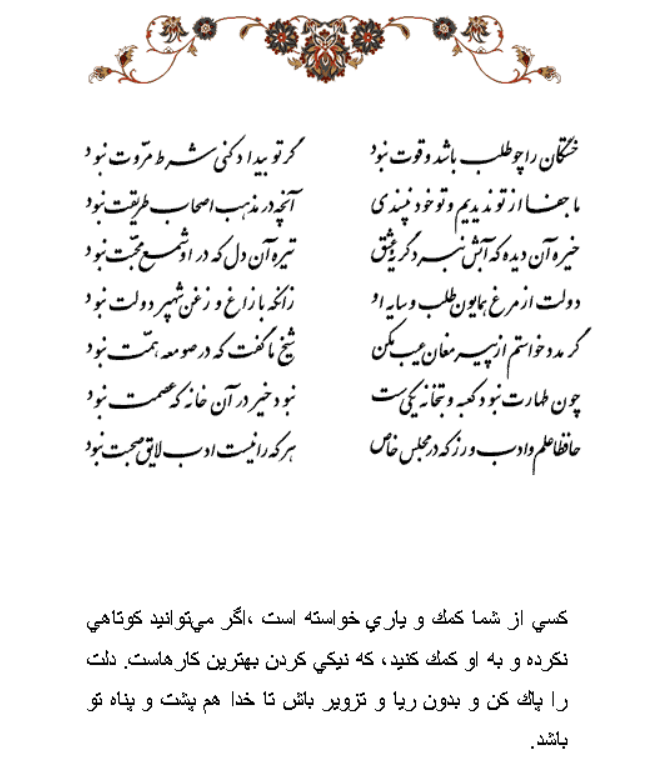 خستگان را چو طلب باشد و قوت نبود گر تو بیداد کنی شرط مروّت نبود
ما جفا از تو ندیدیم و تو خود نپسندی آنچه در مذهب اصحاب طریقت نبود
خیره آن دیده که آبش نبرد گریه عشق تیره آن دل که در او شمع محبّت نبود
دولت از مرغ همایون طلب و سایه او زانکه با زاغ و زغن شهپر دولت نبود
گر مدد خواستم از پیر مغان عیب مکن شیخ ما گفت که در صومعه همّت نبود
چون طهارت نبود کعبه و بتخانه یکی‌ست نبود خیر در آن خانه که عصمت نبود
حافظا علم و ادب ورز که در مجلس خاص هر که را نیست ادب لایق صحبت نبود
كسي از شما كمك و ياري خواسته است ،اگر مي‌توانيد كوتاهي
نكرده و به او كمك كنيد، كه نيكي كردن بهترين كارهاست. دلت
را پاك كن و بدون ريا و تزوير باش تا خدا هم پشت و پناه تو
باشد.